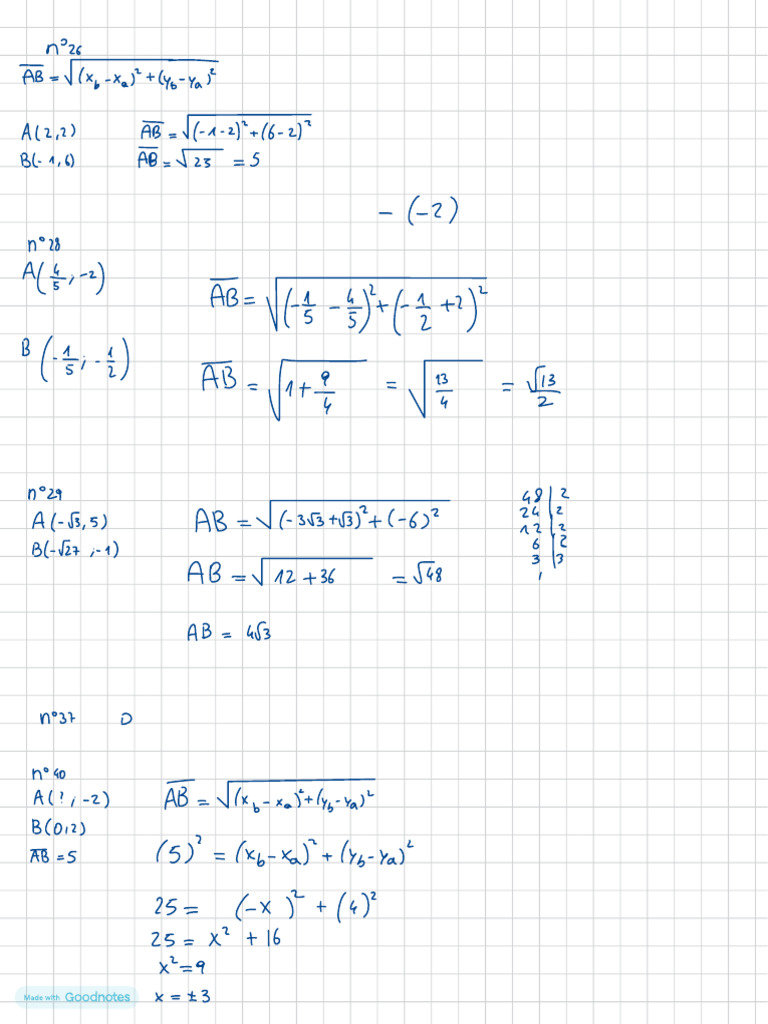 n°26
AB = √((x_b - x_a)² + (y_b - y_a)²)
A(2,2) AB = √((-1-2)² + (6-2)²)
B(-1,6) AB = √23 = 5
- (-2)
n°28
A(4/5; -2) AB = √((-1/5 - 4/5)² + (-1/2 + 2)²)
B(-1/5; -1/2) AB = √(1 + 9/4) = √(13/4) = √13/2
n°29
A(-√3, 5) AB = √((-3√3 + √3)² + (-6)²)
B(-√27; -1)
AB = √(12 + 36) = √48
AB = 4√3
48 | 2
24 | 2
12 | 2
6 | 2
3 | 3
1
n°37 D
n°40
A(?, -2) AB = √((x_b - x_a)² + (y_b - y_a)²)
B(0,2)
AB = 5 (5)² = (x_b - x_a)² + (y_b - y_a)²
25 = (-x)² + (4)²
25 = x² + 16
x² = 9
x = ±3
Made with Goodnotes